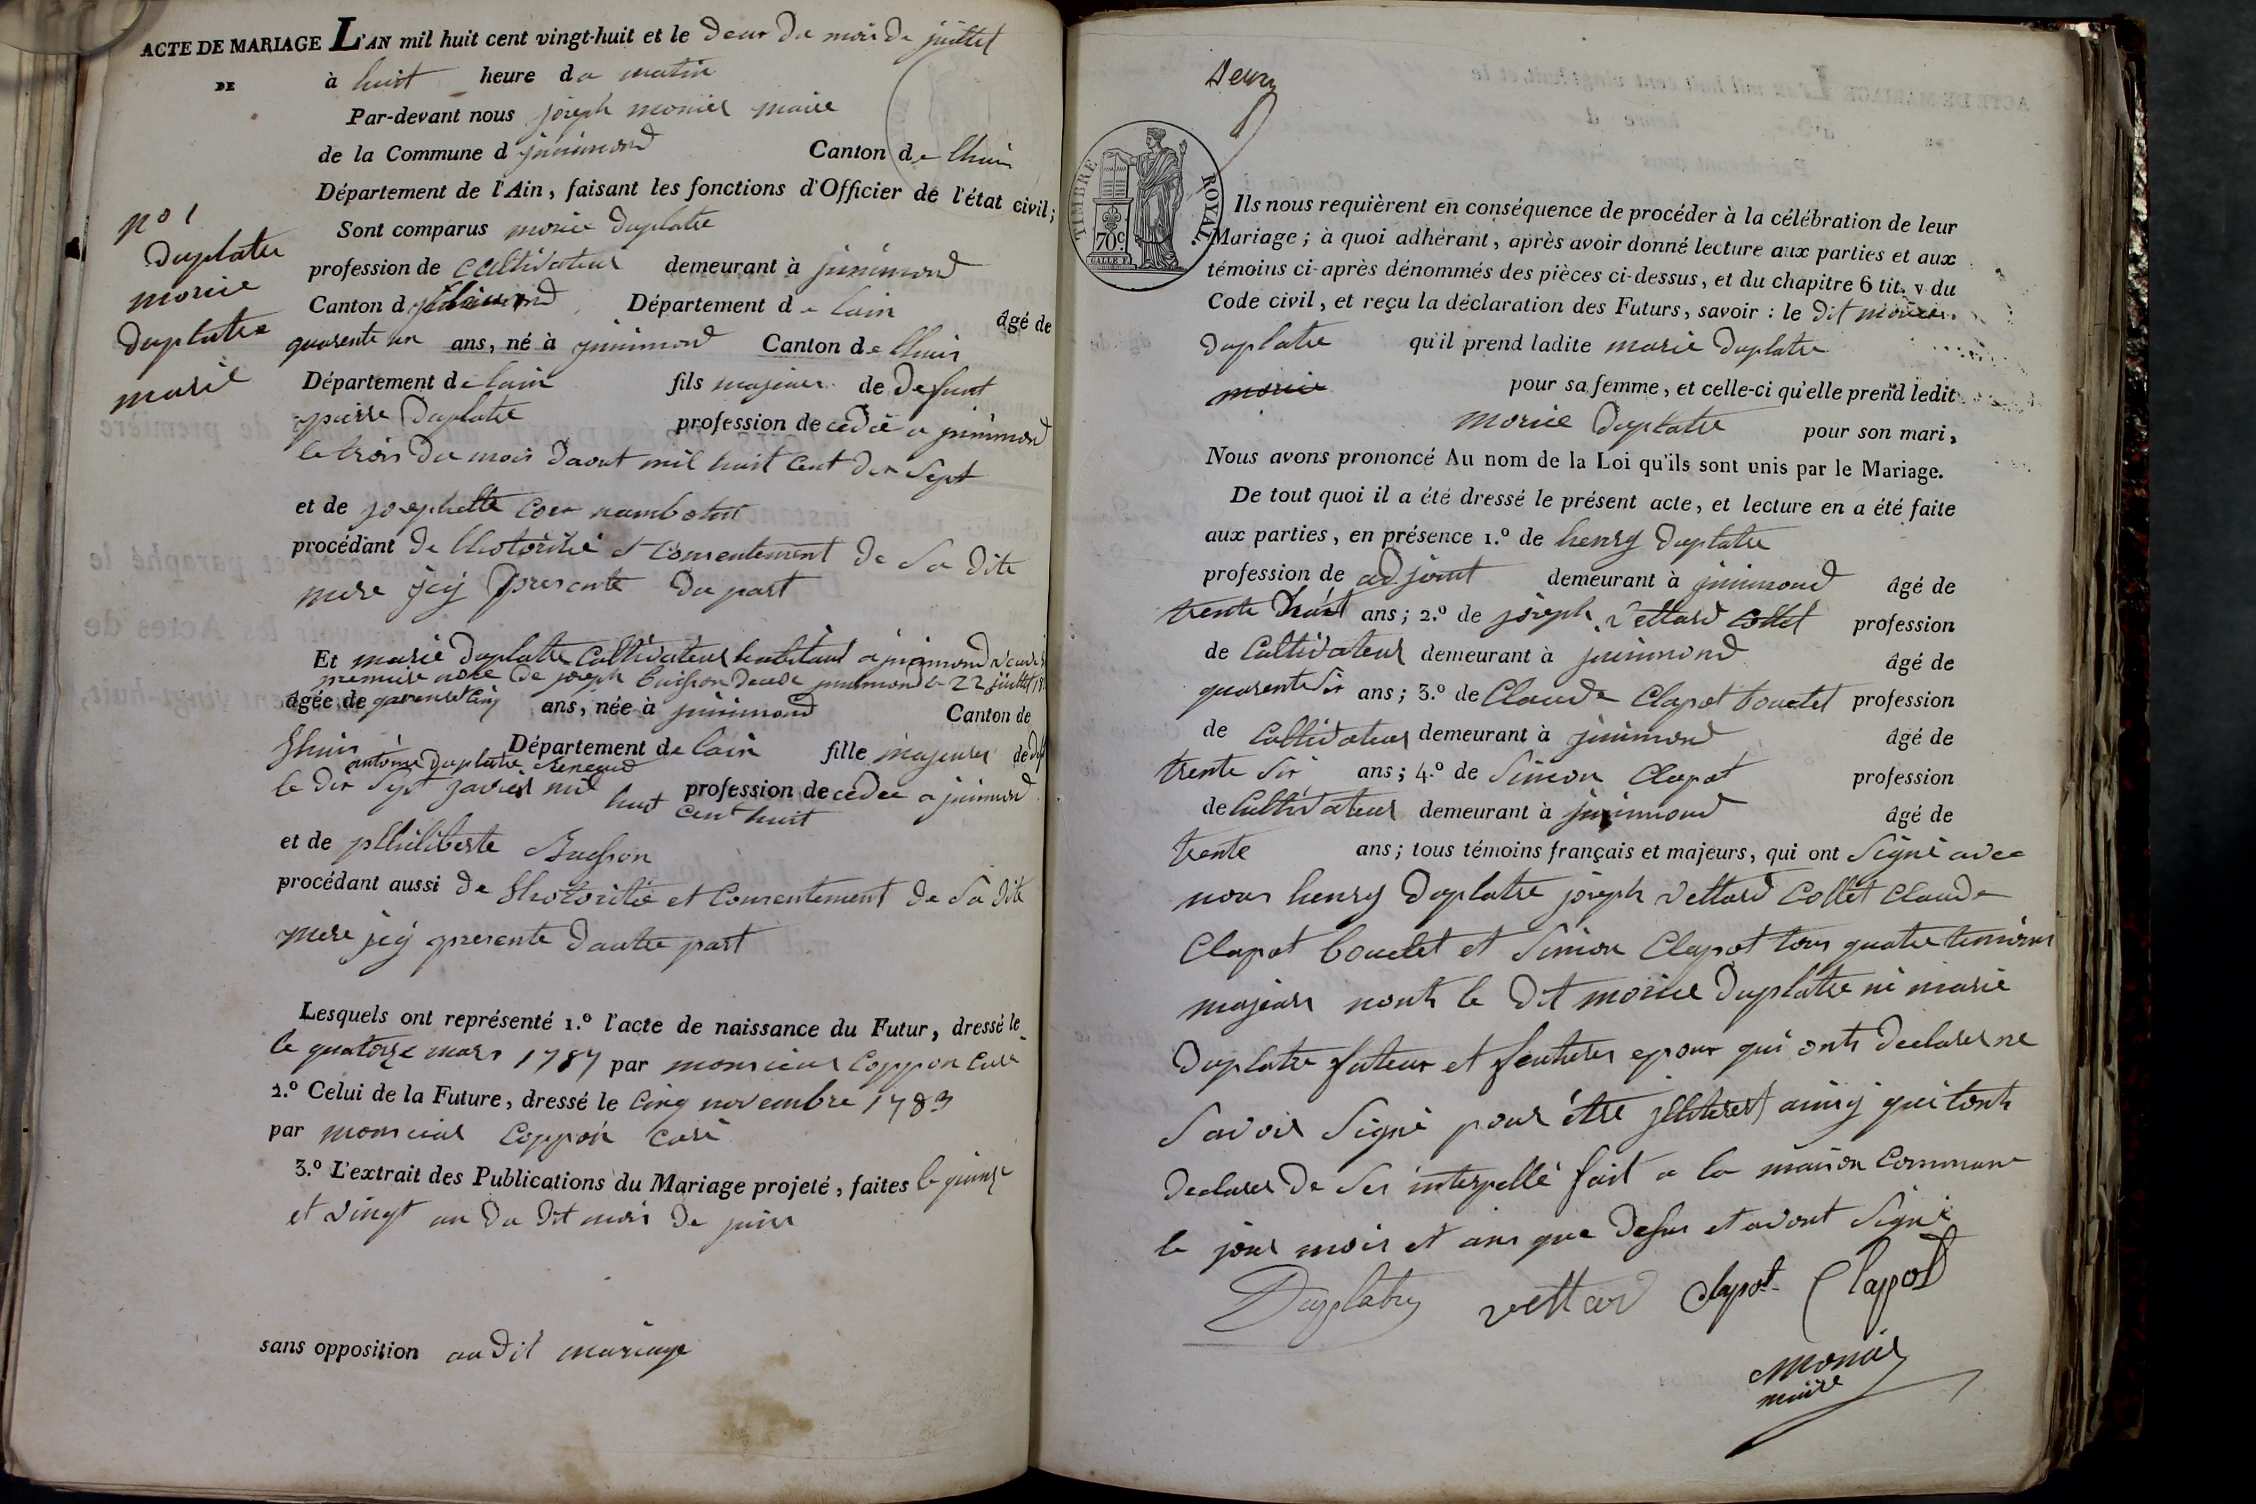 ACTE DE MARIAGE L'AN mil huit cent vingt-huit et le deux du mois de juillet
DE
à huit heure du matin
Par-devant nous joseph monier maire
de la Commune d jujurieux Canton de lhuis
Département de l'Ain, faisant les fonctions d'Officier de l'état civil;
Sont comparus morice duplatre
profession de cultivateur demeurant à
Canton d Département de lain âgé de
quarente un ans, né à Canton de lhuis
Département de lain fils majeur de defunt
pierre Duplatre profession de cédé a
le trois du mois daout mil huit cent dix sept
et de josephette
procédant de lhotorité et consentement de sa dite
mere jcy presente du part
no 1
duplatre
morice
duplatre
marie
Et marie duplatre cultivateur habitant a
premiere noce de joseph buisson decede 22 juillet
âgée de quarente cinq ans, née à Canton de
lhuis Département de lain fille majeure de
antoine duplatre
le dix sept profession de cedee a
huit cent huit
et de philiberte Buisson
procédant aussi de lhotorité et consentement de sa dite
mere jcy presente dautre part
Lesquels ont représenté 1.º l'acte de naissance du Futur, dressé le
le quatorze mars 1787 par monsieur coppon curé
2.º Celui de la Future, dressé le cinq novembre 1783
par monsieur coppon curé
3.º L'extrait des Publications du Mariage projeté, faites le quinze
et vingt un du dit mois de juin
sans opposition au dit mariage
TIMBRE ROYAL.
70 c.
Ils nous requièrent en conséquence de procéder à la célébration de leur
Mariage; à quoi adhérant, après avoir donné lecture aux parties et aux
témoins ci-après dénommés des pièces ci-dessus, et du chapitre 6 tit. v du
Code civil, et reçu la déclaration des Futurs, savoir: le dit morice
duplatre qu'il prend ladite marie duplatre
morice pour sa femme, et celle-ci qu'elle prend ledit
morice duplatre pour son mari,
Nous avons prononcé Au nom de la Loi qu'ils sont unis par le Mariage.
De tout quoi il a été dressé le présent acte, et lecture en a été faite
aux parties, en présence 1.º de henry duplatre
profession de adjoint demeurant à âgé de
trente huit ans; 2.º de joseph vettard collet profession
de cultivateur demeurant à âgé de
quarente six ans; 3.º de Claude Clapot bouctet profession
de cultivateur demeurant à âgé de
trente six ans; 4.º de Simon Clapot profession
de cultivateur demeurant à âgé de
trente ans; tous témoins français et majeurs, qui ont signé avec
nous henry duplatre joseph vettard collet claude
Clapot bouctet et Simon Clapot tous quatre temoins
majeurs nonts le dit morice duplatre ni marie
duplatre futeur et feuture epour qui onts declarer ne
savoir signé pour étre jlliterer ainsy quil onts
declarer de ser interpellé fait a la maison commune
le jour mois et ans que desus et avont signé
Duplatre vettard Clapot Clapot
Monier
maire